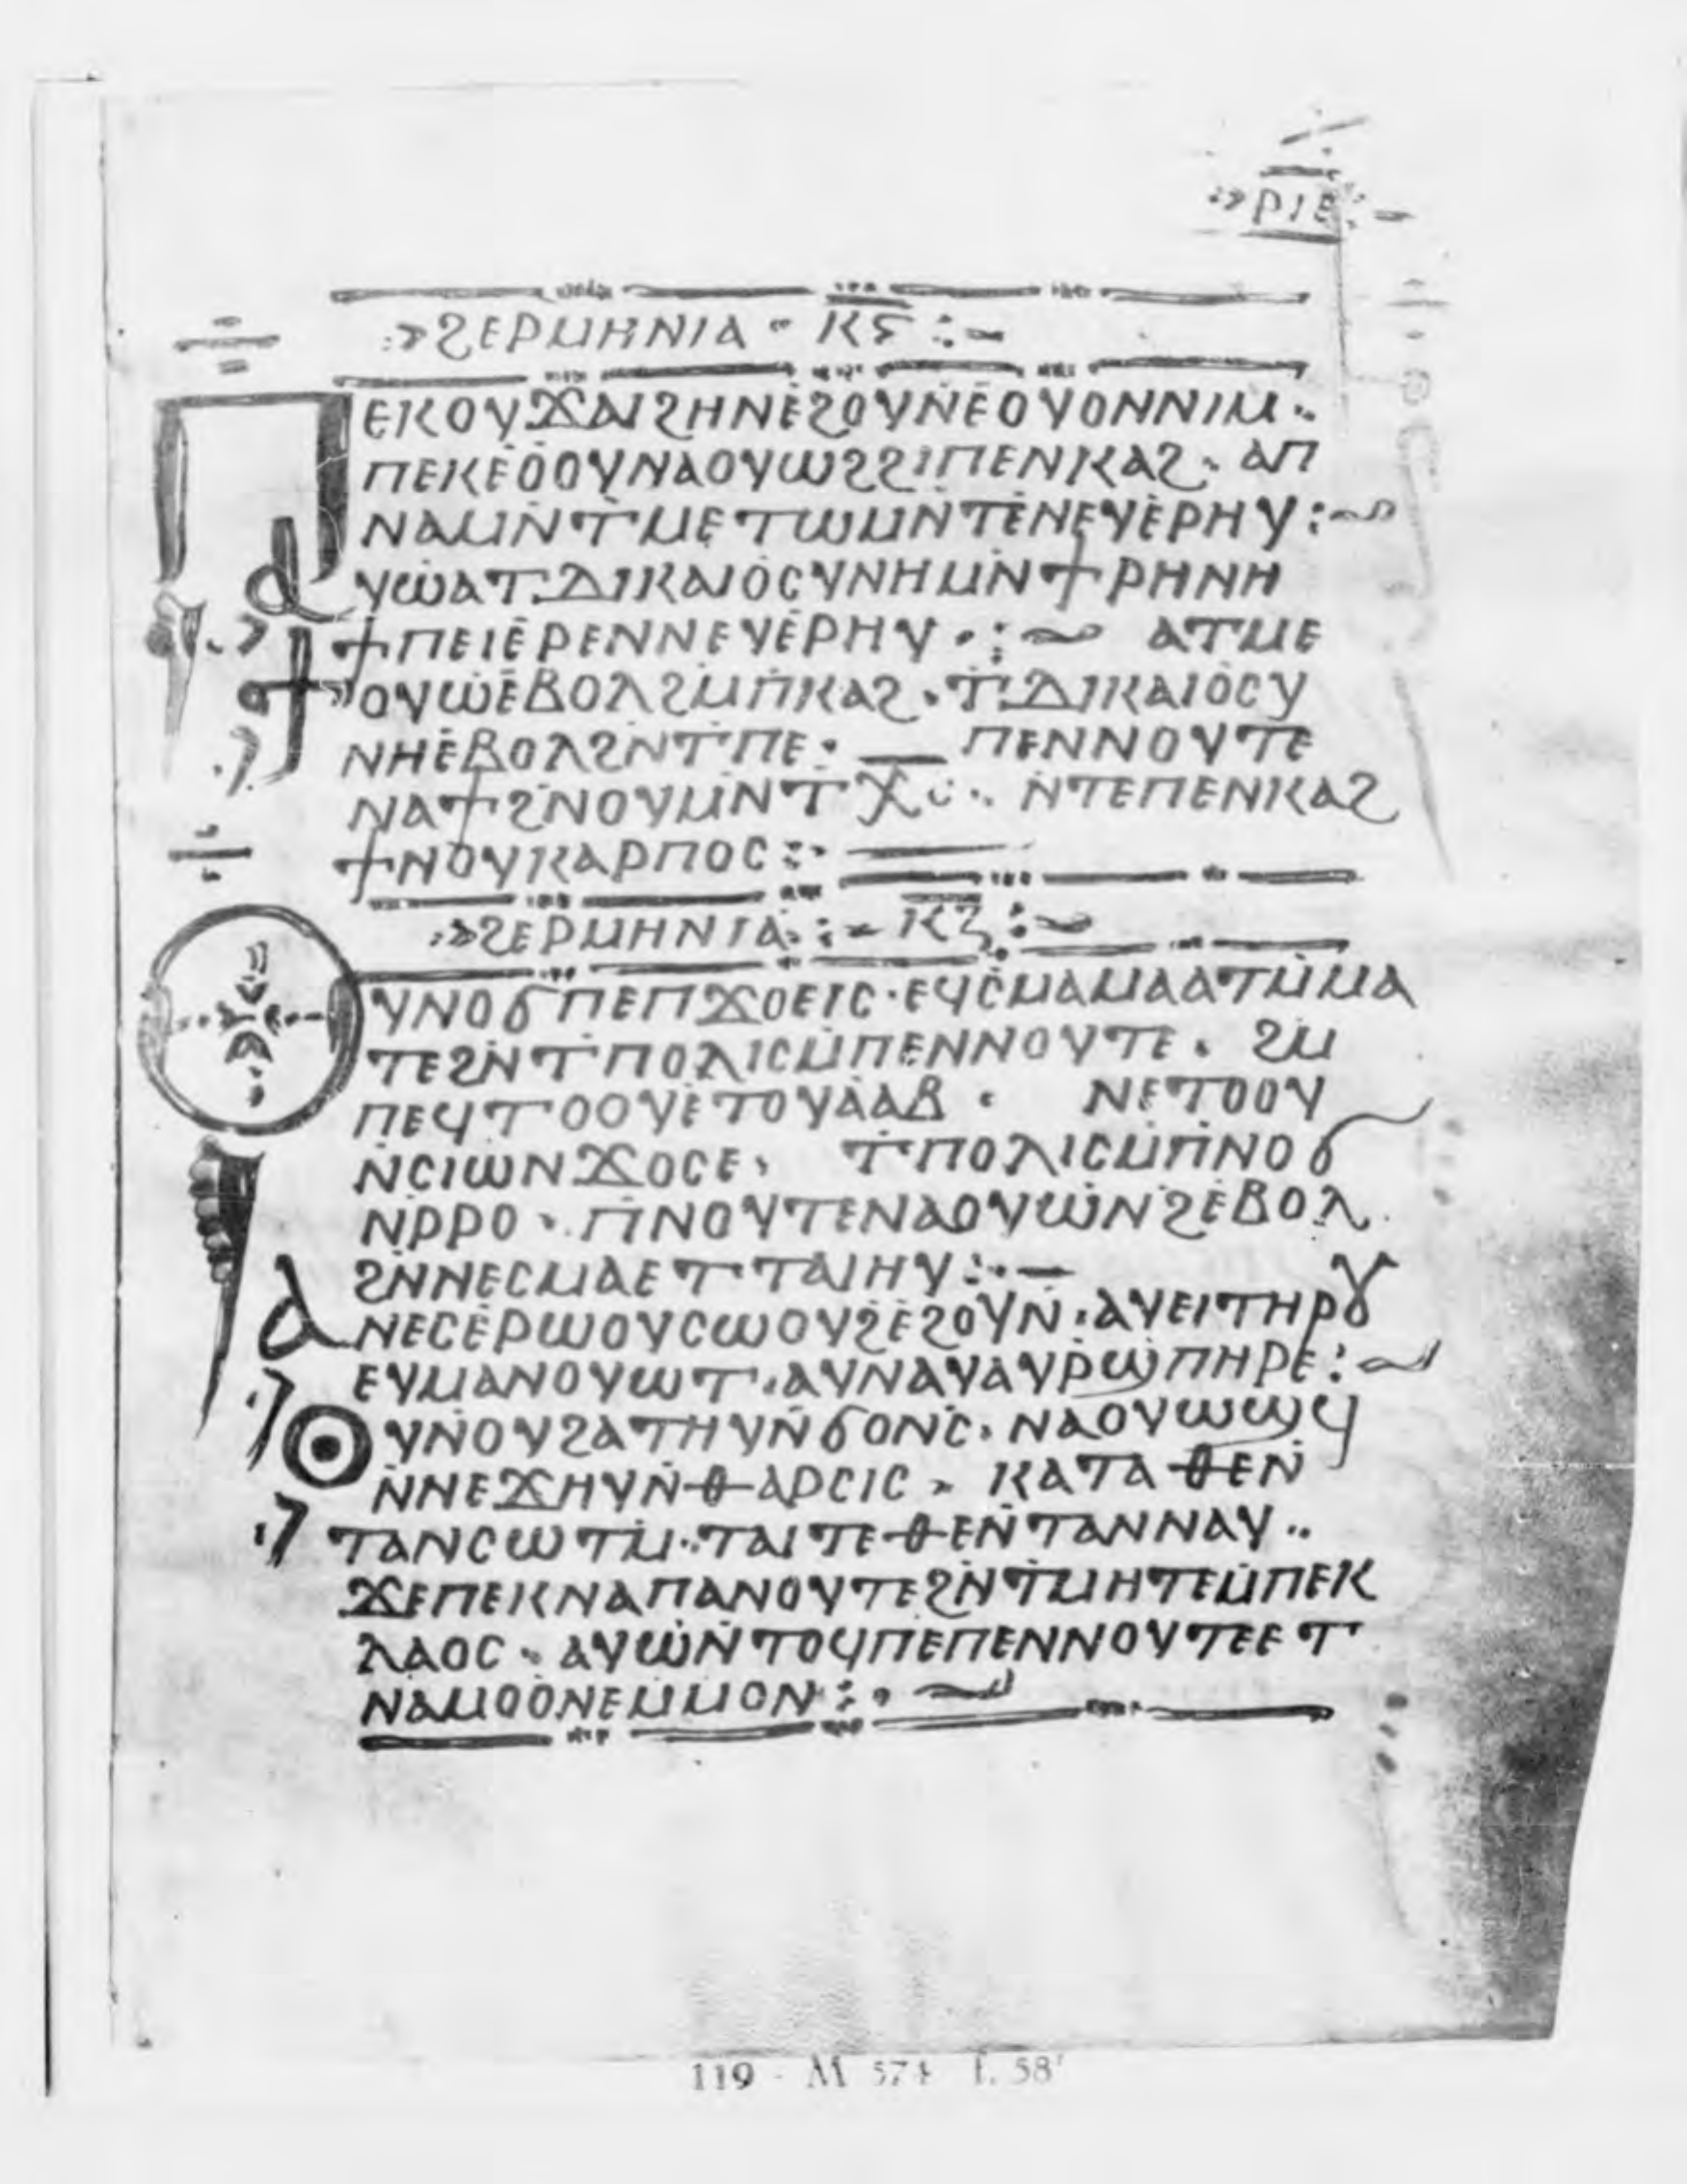 ⲣⲓⲉ
ϩⲉⲣⲙⲏⲛⲓⲁ ⲕⲋ
ⲡⲉⲕⲟⲩϫⲁⲓϩⲏⲛⲉϩⲟⲩⲛⲉⲟⲩⲟⲛⲛⲓⲙ·
ⲡⲉⲕⲉⲟⲟⲩⲛⲁⲟⲩⲱϩϩⲓⲡⲉⲛⲕⲁϩ· ⲁⲡ
ⲛⲁⲙⲛⲧⲙⲉⲧⲱⲙⲛⲧⲉⲛⲉⲩⲉⲣⲏⲩ:~
ⲁⲩⲱⲁⲧⲇⲓⲕⲁⲓⲟⲥⲩⲛⲏⲙⲛϯⲣⲏⲛⲏ
ϯⲡⲉⲓⲉⲣⲉⲛⲛⲉⲩⲉⲣⲏⲩ·:~ ⲁⲧⲙⲉ
ϯⲟⲩⲱⲉⲃⲟⲗϩⲙⲡⲕⲁϩ·ⲧⲇⲓⲕⲁⲓⲟⲥⲩ
ⲛⲏⲉⲃⲟⲗϩⲛⲧⲡⲉ: ⲡⲉⲛⲛⲟⲩⲧⲉ
ⲛⲁϯϩⲛⲟⲩⲙⲛⲧⲭⲥ· ⲛⲧⲉⲡⲉⲛⲕⲁϩ
ϯⲛⲟⲩⲕⲁⲣⲡⲟⲥ:·
ϩⲉⲣⲙⲏⲛⲓⲁ:- ⲕⲍ:~
ⲟⲩⲛⲟϭⲡⲉⲡϫⲟⲉⲓⲥ·ⲉϥⲥⲙⲁⲙⲁⲁⲧⲙⲙⲁ
ⲧⲉϩⲛⲧⲡⲟⲗⲓⲥⲙⲡⲉⲛⲛⲟⲩⲧⲉ· ϩⲙ
ⲡⲉϥⲧⲟⲟⲩⲉⲧⲟⲩⲁⲁⲃ· ⲛⲉⲧⲟⲟⲩ
ⲛⲥⲓⲱⲛϫⲟⲥⲉ· ⲧⲡⲟⲗⲓⲥⲙⲡⲛⲟϭ
ⲛⲣⲣⲟ· ⲡⲛⲟⲩⲧⲉⲛⲁⲟⲩⲱⲛϩⲉⲃⲟⲗ
ϩⲛⲛⲉⲥⲙⲁⲉⲧⲧⲁⲓⲏⲩ:·-
ⲁⲛⲉⲥⲉⲣⲱⲟⲩⲥⲱⲟⲩϩⲉϩⲟⲩⲛ·ⲁⲩⲉⲓⲧⲏⲣⲟⲩ
ⲉⲩⲙⲁⲛⲟⲩⲱⲧ·ⲁⲩⲛⲁⲩⲁⲩⲣϣⲡⲏⲣⲉ:~
ⲟⲩⲛⲟⲩϩⲁⲧⲏⲩⲛϭⲟⲛⲥ·ⲛⲁⲟⲩⲱϣϥ
ⲛⲛⲉϫⲏⲩⲛⲑⲁⲣⲥⲓⲥ· ⲕⲁⲧⲁⲑⲉⲛ
ⲧⲁⲛⲥⲱⲧⲙ·ⲧⲁⲓⲧⲉⲑⲉⲛⲧⲁⲛⲛⲁⲩ··
ϫⲉⲡⲉⲕⲛⲁⲡⲁⲛⲟⲩⲧⲉϩⲛⲧⲙⲏⲧⲉⲙⲡⲉⲕ
ⲗⲁⲟⲥ· ⲁⲩⲱⲛⲧⲟϥⲡⲉⲡⲉⲛⲛⲟⲩⲧⲉⲉⲧ
ⲛⲁⲙⲟⲟⲛⲉⲙⲙⲟⲛ:·~
119 - M 574 f. 58ʳ